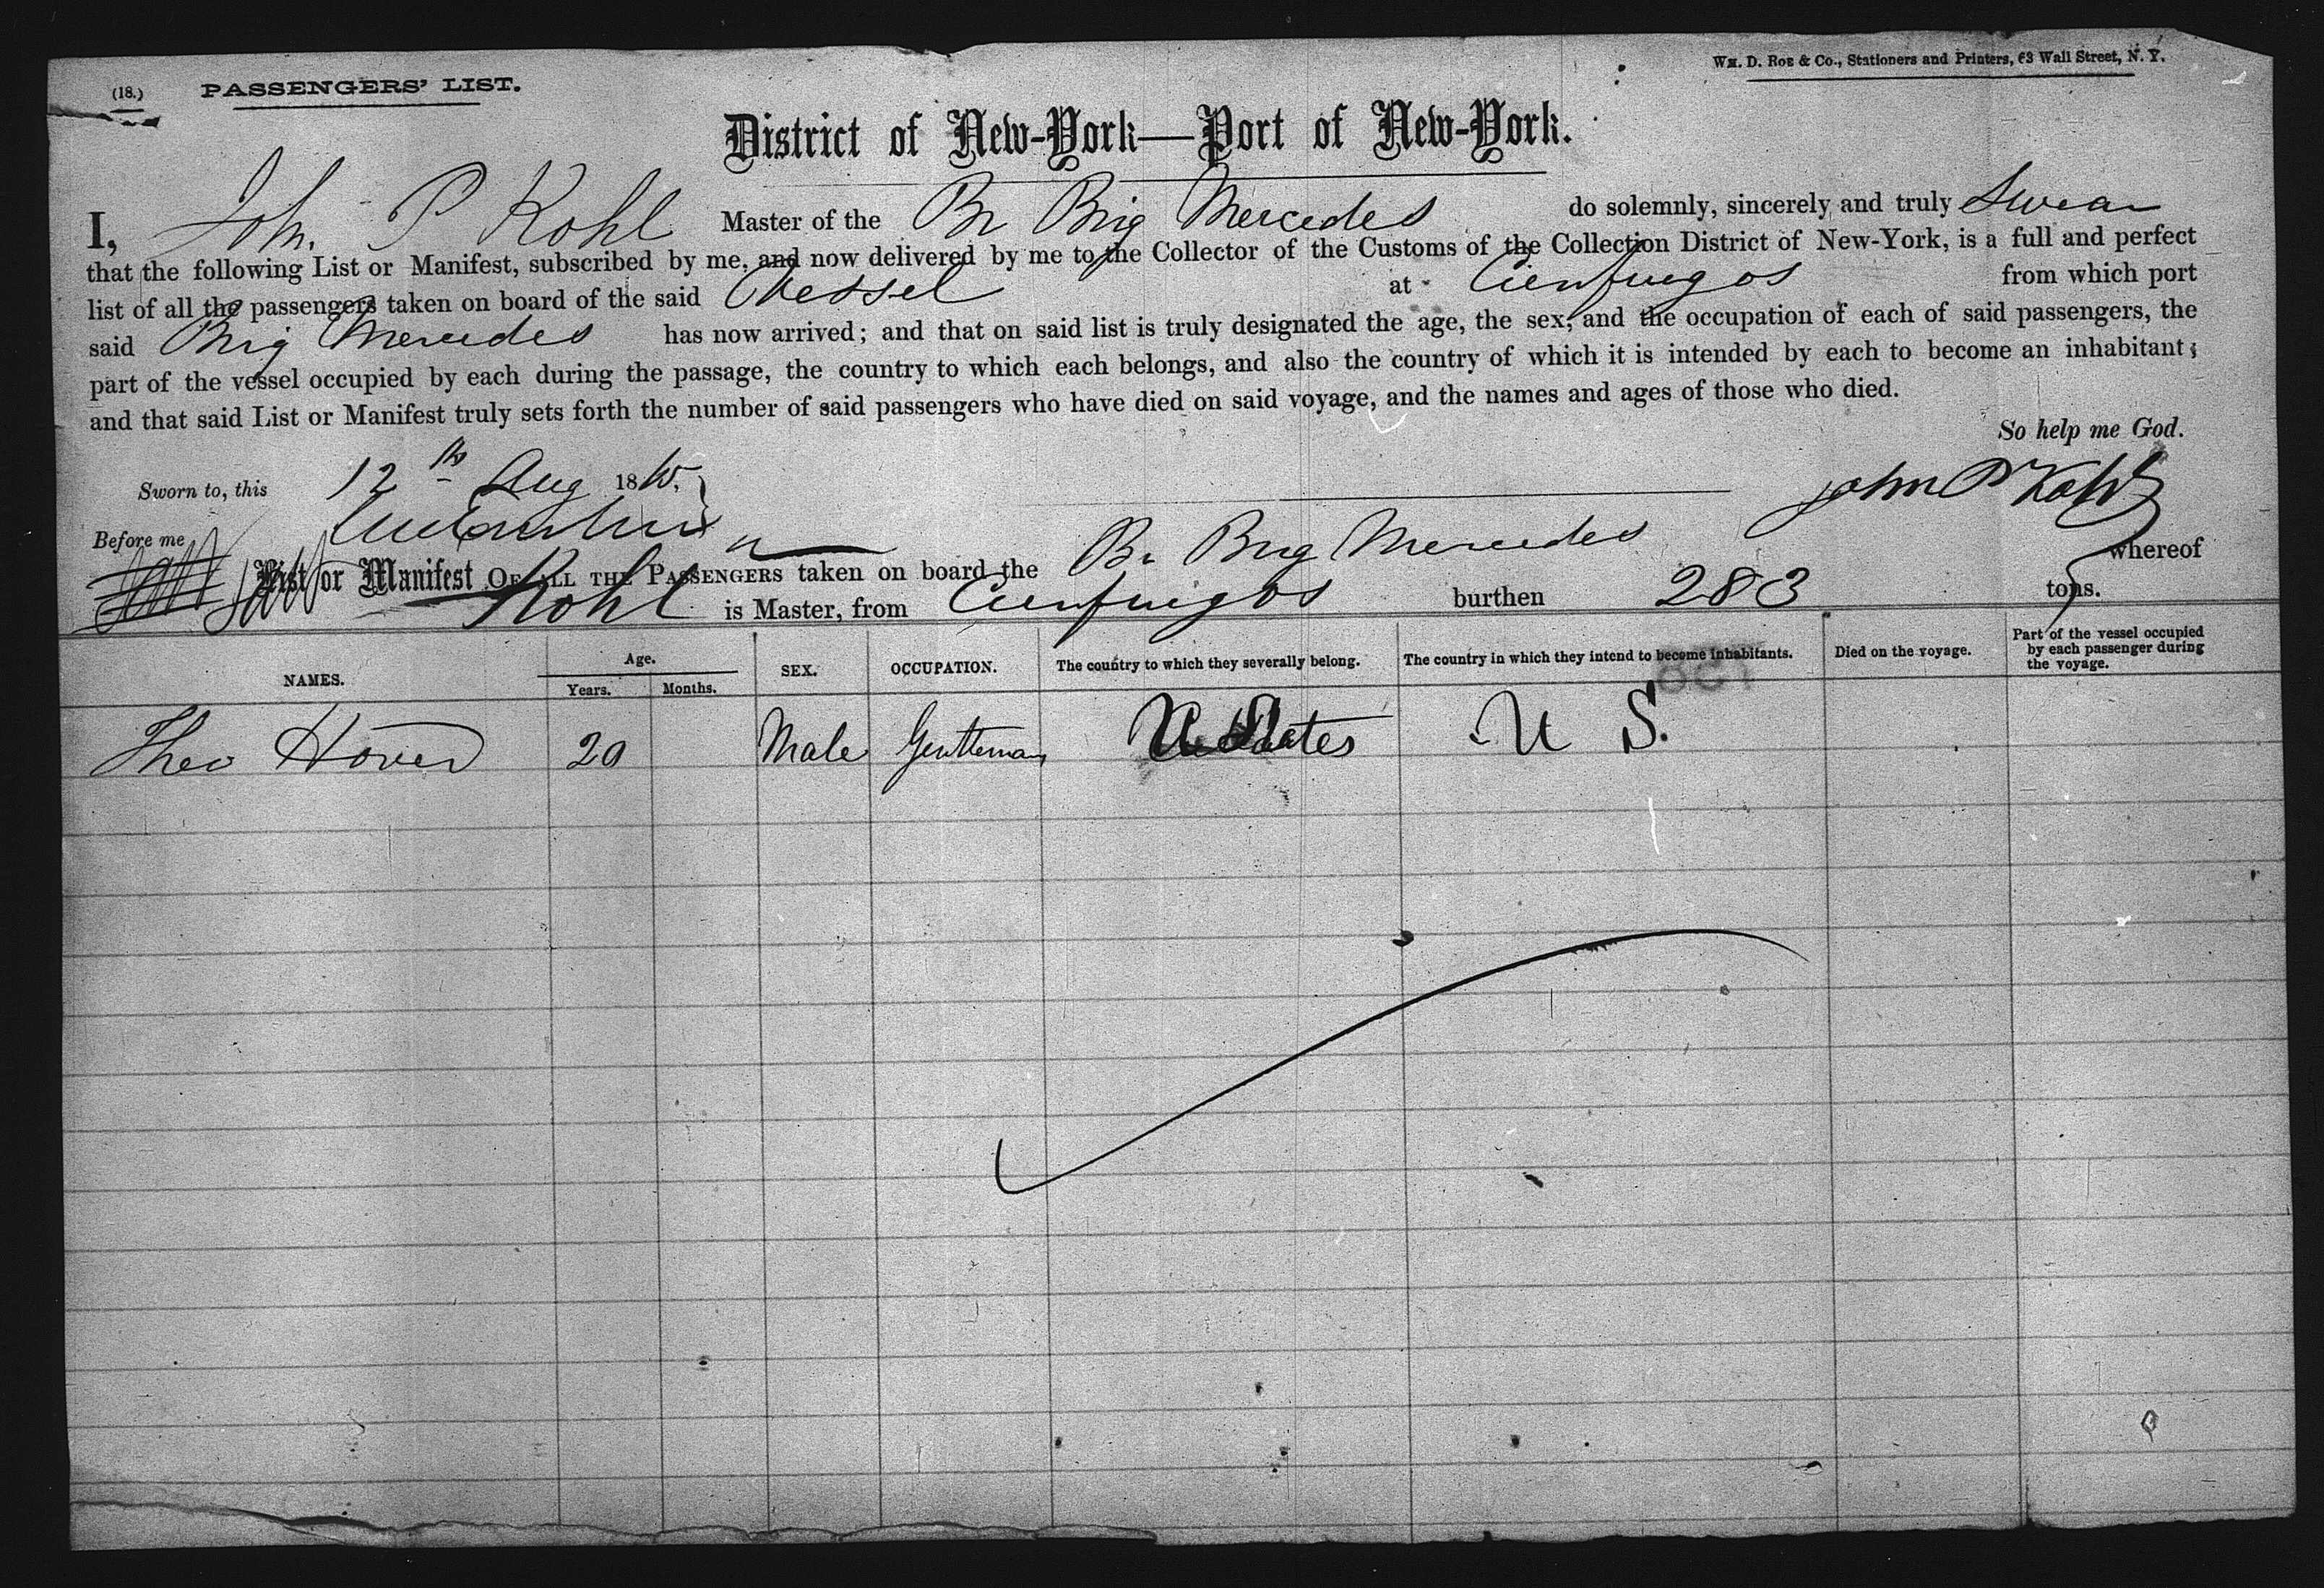 (18.) PASSENGERS' LIST.
WM. D. ROE & CO., Stationers and Printers, 63 Wall Street, N. Y.
District of New-York—Port of New-York.
I, John P Kohl Master of the Br Brig Mercedes do solemnly, sincerely and truly Swear
that the following List or Manifest, subscribed by me, and now delivered by me to the Collector of the Customs of the Collection District of New-York, is a full and perfect
list of all the passengers taken on board of the said Vessel at Cienfuegos from which port
said Brig Mercedes has now arrived; and that on said list is truly designated the age, the sex, and the occupation of each of said passengers, the
part of the vessel occupied by each during the passage, the country to which each belongs, and also the country of which it is intended by each to become an inhabitant;
and that said List or Manifest truly sets forth the number of said passengers who have died on said voyage, and the names and ages of those who died.
So help me God.
Sworn to, this 12th Aug 1865, John P Kohl
Before me
List or Manifest OF ALL THE PASSENGERS taken on board the Br Brig Mercedes whereof
Kohl is Master, from Cienfuegos burthen 283 tons.
NAMES. Age. Years. Months. SEX. OCCUPATION. The country to which they severally belong. The country in which they intend to become inhabitants. Died on the voyage. Part of the vessel occupied by each passenger during the voyage.
OCT
Theo Hover 20 Male Gentleman U States U S.